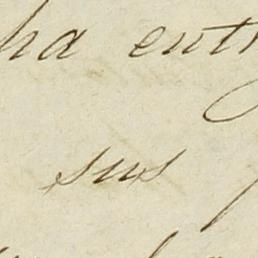 ha entr
sus